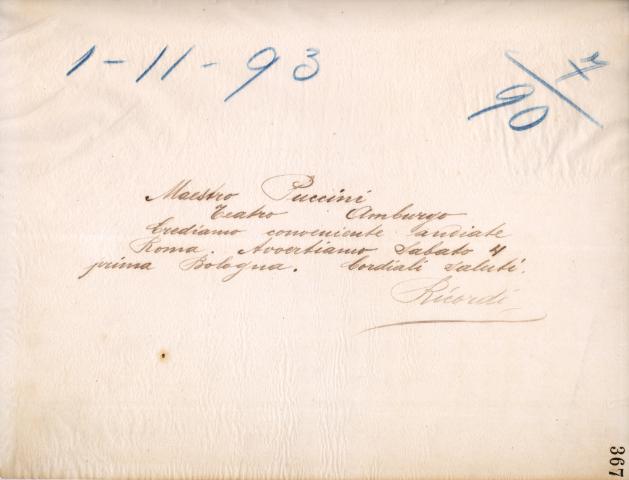 1-11-93
7/90
Maestro Puccini
Teatro Amburgo
Crediamo conveniente andiate
Roma. Avvertiamo Sabato 4
prima Bologna. Cordiali Saluti.
Ricordi
367